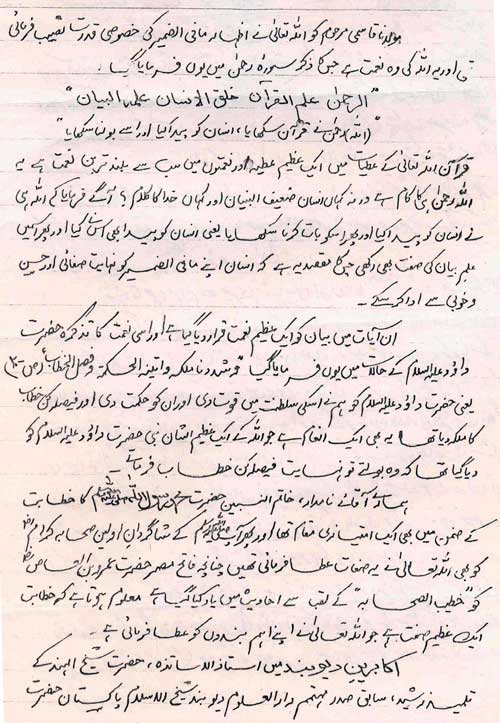 مولانا قاسمی مرحوم کو اللہ تعالیٰ نے اظہار مافی الضمیر کی خصوصی قدرت نصیب فرمائی
تھی اور یہ اللہ کی وہ نعمت ہے جس کا ذکر سورۃ رحمٰن میں یوں فرمایا گیا۔
"الرحمٰن علم القرآن خلق الانسان علمہ البیان"
"(اللہ) رحمٰن نے قرآن سکھایا، انسان کو پیدا کیا اور اسے بولنا سکھایا"
قرآن اللہ تعالیٰ کے عطیات میں ایک عظیم عطیہ اور نعمتوں میں سب سے بلند ترین نعمت ہے یہ
اللہ رحمٰن ہی کا کام ہے ورنہ کہاں انسان ضعیف البنیان اور کہاں خدا کا کلام؟ آگے فرمایا کہ اللہ ہی
نے انسان کو پیدا کیا اور پھر اسکو بات کرنا سکھلایا یعنی انسان کو پیدا بھی اس نے کیا اور پھر اسمیں
علم بیان کی صفت بھی رکھی جس کا مقصد یہ ہے کہ انسان اپنے مافی الضمیر کو نہایت صفائی اور حسن
و خوبی سے ادا کر سکے۔
ان آیات میں بیان کو ایک عظیم نعمت قرار دیا گیا ہے اور اسی نعمت کا تذکرہ حضرت
داؤد علیہ السلام کے حالات میں یوں فرمایا گیا "وشددنا ملکہ واتینہ الحکمۃ وفصل الخطاب" (ص-۲۰)
یعنی حضرت داؤد علیہ السلام کو ہم نے اسکی سلطنت میں قوت دی اور ان کو حکمت دی اور فیصلہ کن خطاب
کا ملکہ دیا تھا یہ بھی ایک انعام ہے جو اللہ کے ایک عظیم الشان نبی حضرت داؤد علیہ السلام کو
دیا گیا تھا کہ وہ بولتے تو نہایت فیصلہ کن خطاب فرماتے۔
ہمارے آقائے نامدار، خاتم النبیین حضرت محمد رسول اللہ صلی اللہ علیہ وسلم کا خطابت
کے ضمن میں بھی ایک امتیازی مقام تھا اور پھر آپ صلی اللہ علیہ وسلم کے شاگردان اولین صحابہ کرامؓ
کو بھی اللہ تعالیٰ نے یہ صفات عطا فرمائی تھیں چنانچہ فاتح مصر حضرت عمرو بن العاصؓ
کو "خطیب الصحابہ" کے لقب سے احادیث میں یاد کیا گیا ہے معلوم ہوتا ہے کہ خطابت
ایک عظیم صفت ہے جو اللہ تعالیٰ نے اپنے اہم بندوں کو عطا فرمائی ہے۔
اکابرین دیوبند میں استاذ الاساتذہ، حضرت شیخ الہند کے
تلمیذ رشید، سابق صدر مہتمم دارالعلوم دیوبند شیخ الاسلام پاکستان حضرت